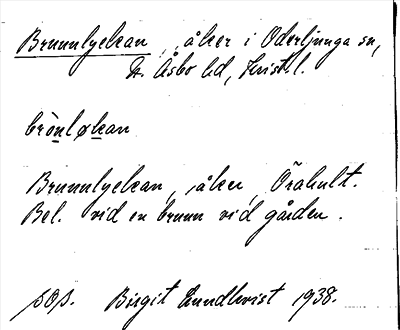 Brunnlyckan, åker i Oderljunga sn,
N. Åsbo hd, Krist. l.
brònløkan
Brunnlyckan, åker, Örahult.
Bel. vid en brunn vid gården.
sos. Birgit Lundkvist 1938.